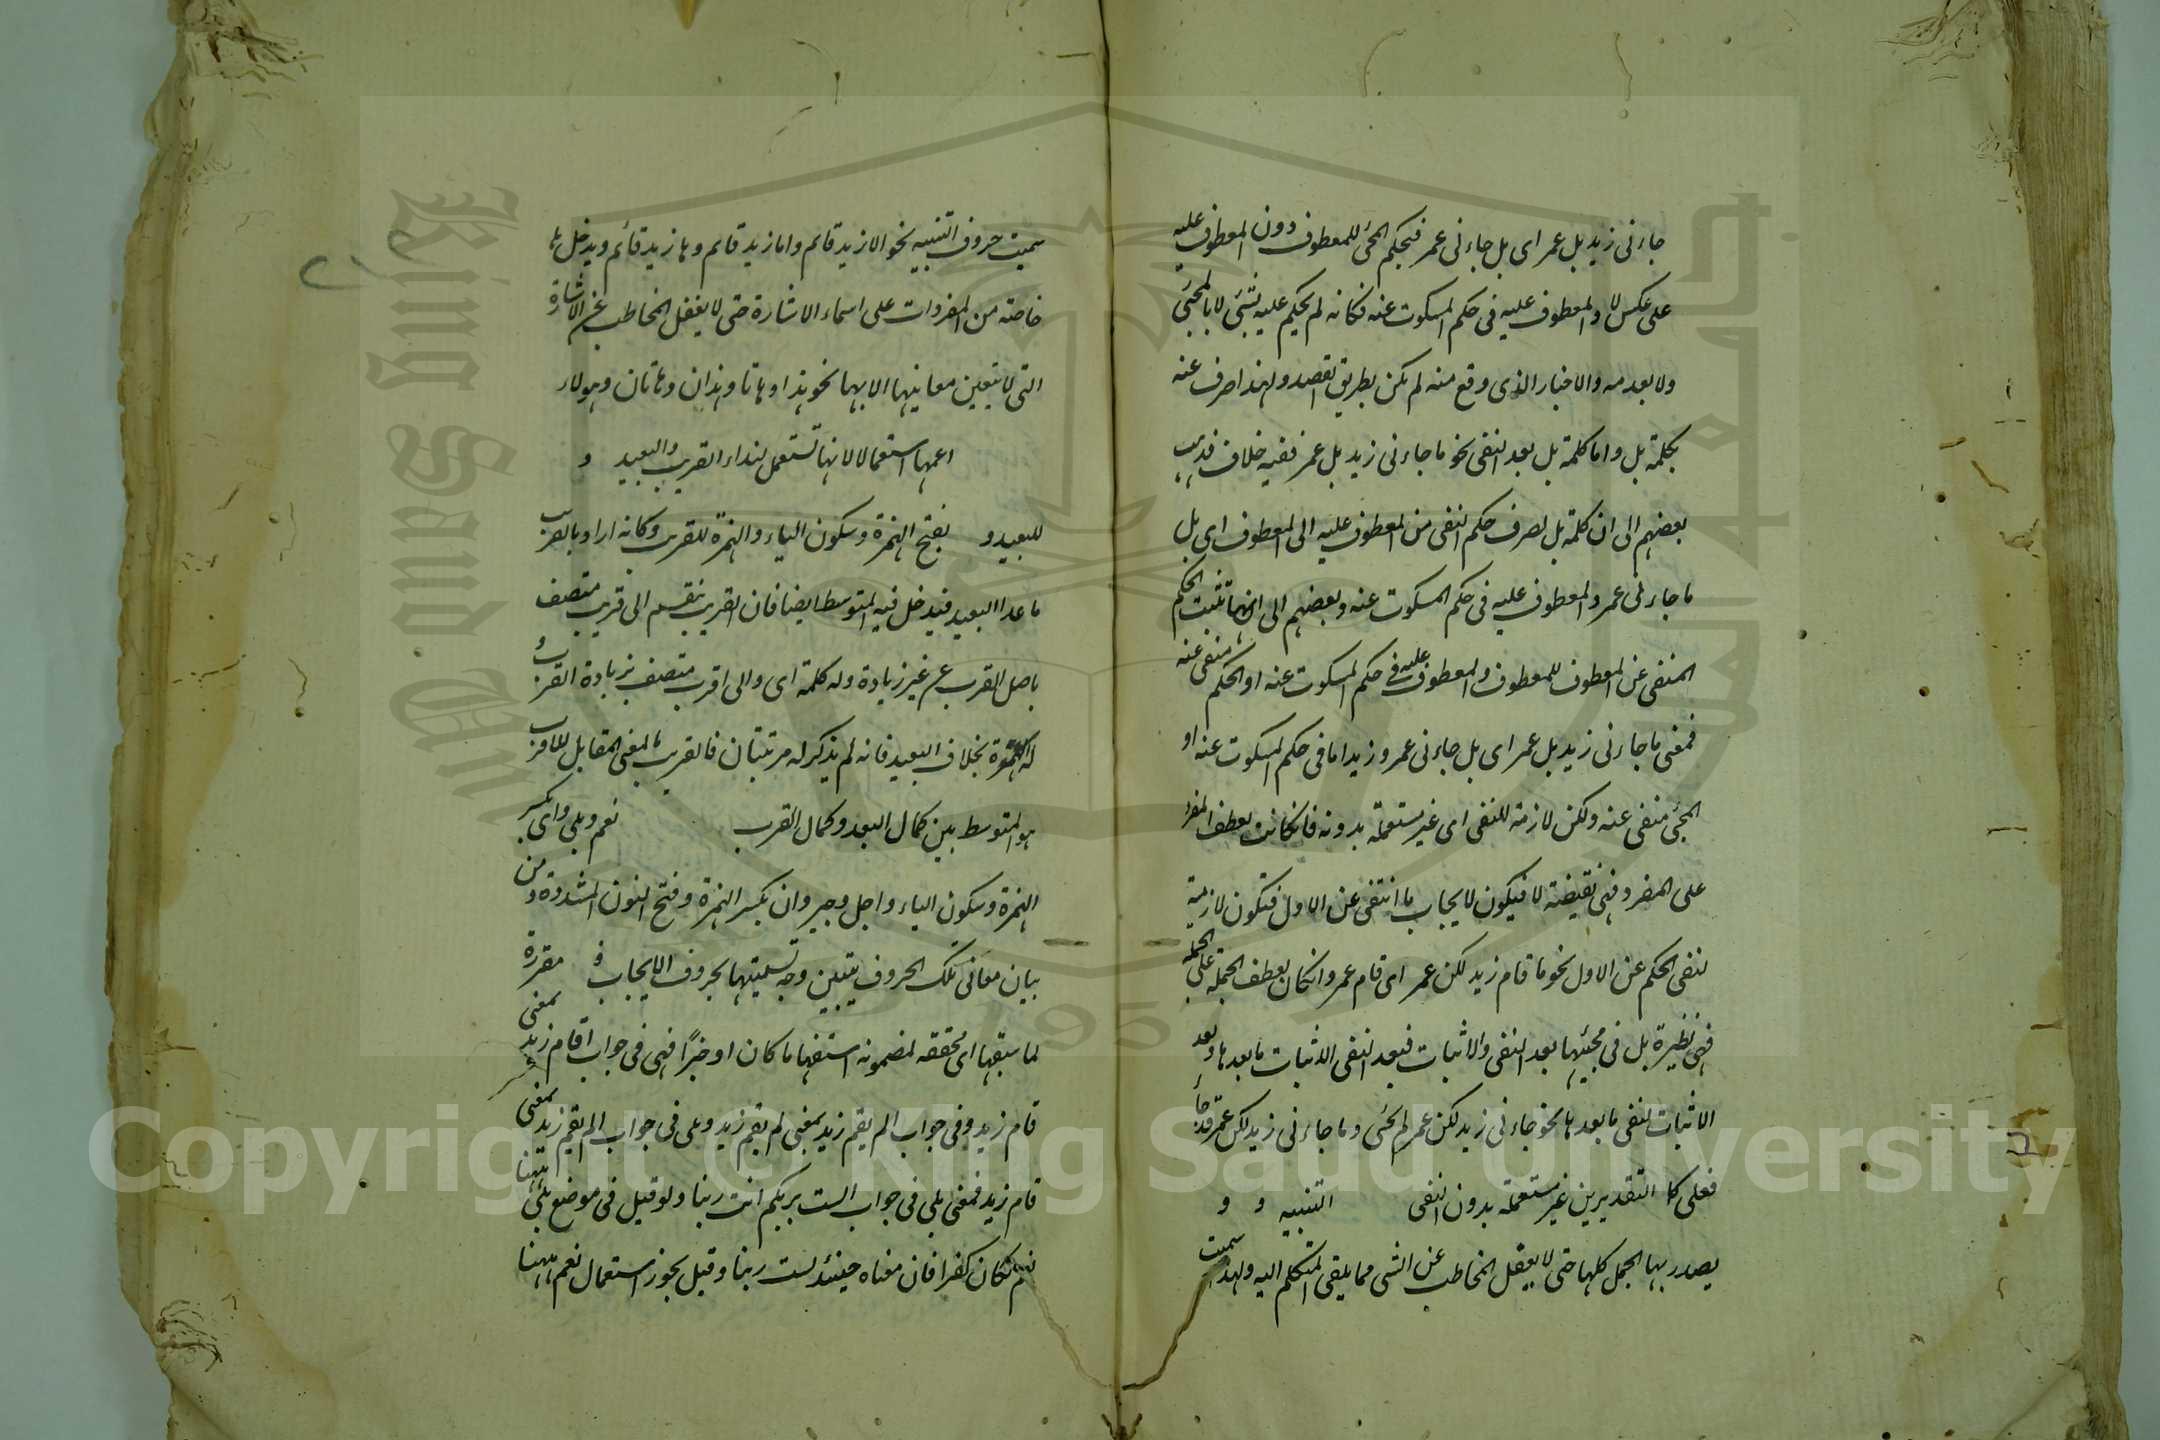 جاءنى زيد بل عمر اى بل جاءنى عمر فحكم المجئ للمعطوف دون المعطوف عليه
على عكس لا والمعطوف عليه فى حكم المسكوت عنه فكانه لم يحكم عليه بشئ لا بالمجئ
ولا بعدمه والاخبار الذى وقع منه لم يكن بطريق القصد ولهذا صرف عنه
بكلمة بل واما كلمة بل بعد النفى نحو ما جاءنى زيد بل عمر ففيه خلاف فذهب
بعضهم الى ان كلمة بل لصرف حكم النفى من المعطوف عليه الى المعطوف اى بل
ما جاءنى عمر والمعطوف عليه فى حكم المسكوت عنه وبعضهم الى انها تثبت الحكم
المنفى عن المعطوف للمعطوف والمعطوف عليه فى حكم المسكوت عنه او الحكم منفى عنه
فمعنى ما جاءنى زيد بل عمر اى بل جاءنى عمر وزيد اما فى حكم المسكوت عنه او
المجئ منفى عنه ولكن لازمة للنفى اى غير مستعملة بدونه فان كانت لعطف المفرد
على المفرد فهى نقيضة لا فيكون لايجاب ما انتفى عن الاول فتكون لازمة
لنفى الحكم عن الاول نحو ما قام زيد لكن عمر اى قام عمر وان كان لعطف الجملة على الجملة
فهى نظيرة بل فى مجيئها بعد النفى والاثبات فبعد النفى لاثبات ما بعدها وبعد
الاثبات لنفى ما بعدها نحو جاءنى زيد لكن عمر لم يجئ وما جاءنى زيد لكن عمر قد جاء
فعلى كلا التقديرين غير مستعملة بدون النفى التنبيه و و
يصدر بها الجمل كلها حتى لا يغفل المخاطب عن الشى مما يلقى المتكلم اليه ولهذا سميت
سميت حروف التنبيه نحو الا زيد قائم واما زيد قائم وها زيد قائم ويدخل ها
خاصة من المفردات على اسماء الاشارة حتى لا يغفل المخاطب عن الاشارة
التى لا يتعين معانيها الا بها نحو هذا وهاتا وهذان وهاتان وهولاء
اعمها استعمالا لانها تستعمل لنداء القريب والبعيد و
للبعيد و بفتح الهمزة وسكون الياء والهمزة للقريب وكانه اراد بالقريب
ما عدا البعيد فيدخل فيه المتوسط ايضا فان القريب ينقسم الى قريب متصف
باصل القرب من غير زيادة وله كلمة اى والى اقرب متصف بزيادة القرب و
له الهمزة بخلاف البعيد فانه لم يذكر له مرتبتان فالقريب بالمعنى المقابل للاقرب
هو المتوسط بين كمال البعد وكمال القرب نعم وبلى واى بكسر
الهمزة وسكون الياء واجل وجير وان بكسر الهمزة وفتح النون المشددة ومن
بيان معانى تلك الحروف يتبين وجه تسميتها بحروف الايجاب و مقررة
لما سبقها اى محققه لمضمونه استفهاما كان او خبرًا فهى فى جواب اقام زيد بمعنى
قام زيد وفى جواب الم يقم زيد بمعنى لم يقم زيد وبلى فى جواب الم يقم زيد بمعنى
قام زيد فمعنى بلى فى جواب الست بربكم انت ربنا ولو قيل فى موضع بلى ههنا
نعم لكان كفرا فان معناه حينئذ لست ربنا وقيل يجوز استعمال نعم ههنا
King Saud University
1957
Copyright © King Saud University